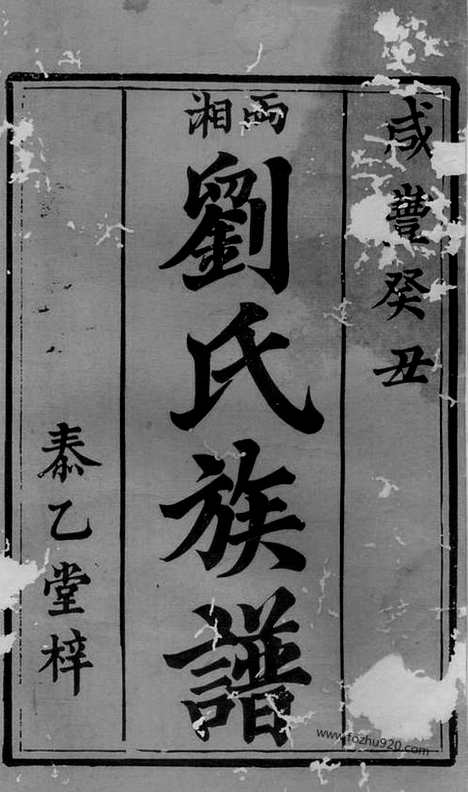 咸豐癸丑
湘
劉氏族譜
泰乙堂梓
www.fozhu920.com